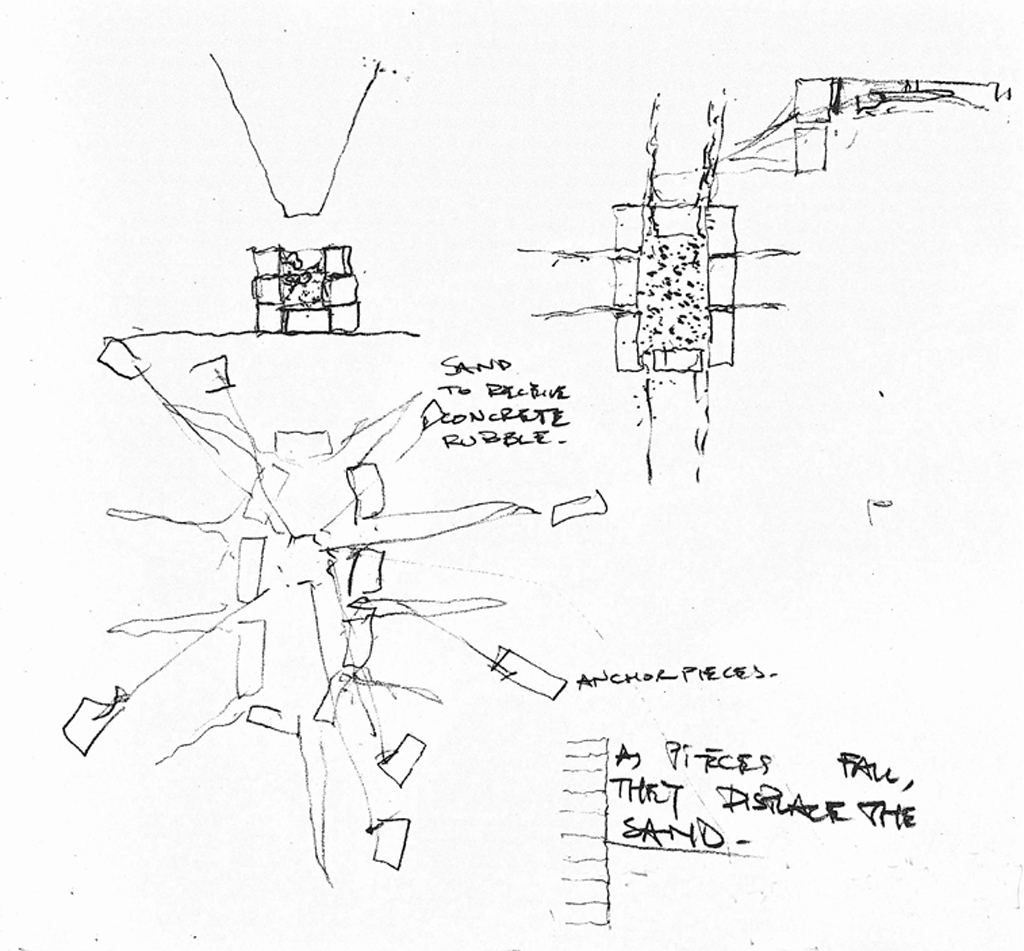 SAND
TO RECEIVE
CONCRETE
RUBBLE.
ANCHOR PIECES.
AS PIECES FALL,
THEY DISPLACE THE
SAND.